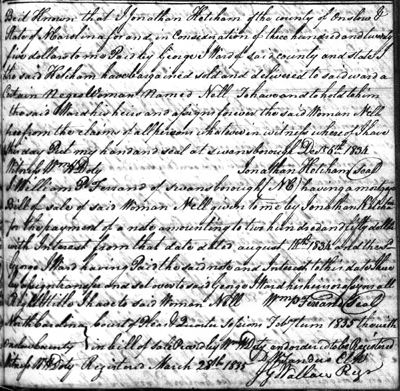 Beit Known that I Jonathan Ketcham of the county of Onslow &
State of N Carolina for and in Consideration of three hundred and twenty
five dollars to me Paid by George J Ward of said county and state I
the said Ketcham have bargained sold and delivered to said ward a
Certain Negro Woman Named Nell To have and to hold to him
the said Ward his heirs and assigns forever the said Woman Nell
free from the claims of all persons whatever in witness whereof I have
this day Put my hand and seal at swansborough Dec 15th 1834
Witness Wm N Doty Jonathan Ketcham Seal
I William P Ferrand of swansborough NC having a mortgage
Bill of sale of said Woman Nell given to me by Jonathan Ketcham
for the payment of a note amounting to two hundred and fifty dollars
with Interest from that date dated august 1834 and the sd
George J Ward having Paid the said note and Interest to this date I have
assign transfer and set over to said George Ward his heirs assigns all
title I have to said Woman Nell Wm P Ferrand Seal
North Carolina Court of Pleas & Quarter Sessions Feb Term 1835 the with
Onslow County in bill of sale Proved by Wm N Doty and ordered to be Registered
Witness W Doty Registered March 28th 1835
J G Wallace Regr